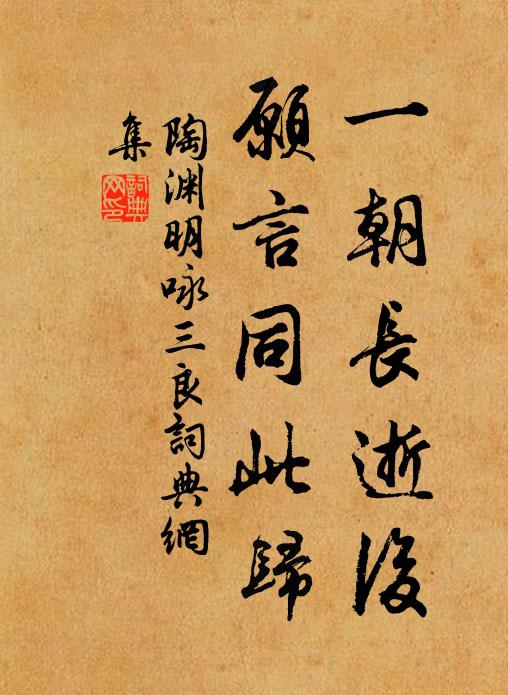 一朝長逝後
願言同此歸
陶渊明咏三良詞典網
集
詞典
网印